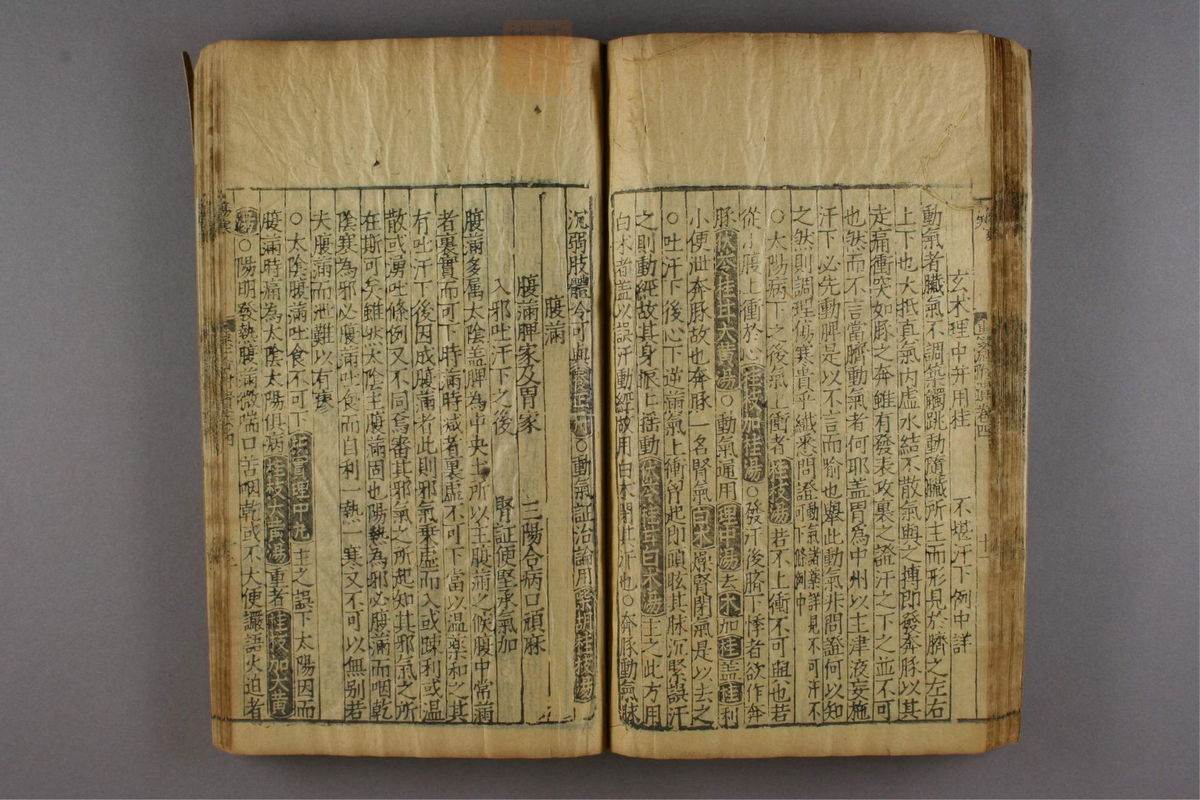 玄术理中并用桂　不堪汗下例中詳
動氣者臟氣不調築觸跳動隨臟所主而形見於臍之左右
上下也大抵真氣内虚水結不散氣與之搏即發奔豚以其
走痛衝突如豚之奔雖有發表攻裏之證汗之下之並不可
也然而不言當臍動氣者何耶盖胃為中州以主津液妄施
汗下必先動脾是以不言而喻也舉此動氣非問證何以知
之然則調理傷寒貴乎纎悉問證動氣諸藥詳見不可汗不下條例中
○太陽病下之後氣上衝者桂枝湯若不上衝不可與也若
從小腹上衝於心桂枝加桂湯○發汗後臍下悸者欲作奔
豚茯苓桂甘大黄湯○動氣通用理中湯去术加桂盖桂利
小便泄奔豚故也奔豚一名腎氣白术燥腎閉氣是以去之
○吐汗下後心下逆滿氣上衝胷起即頭眩其脉沉緊誤汗
之則動經故其身振上揺動茯苓桂甘白术湯主之此方用
白术者盖以誤汗動經故用白术閉其汗也○奔豚動氣脉
沉弱肢體冷可與養正丹○動氣証治論用柴胡桂枝湯
腹滿
腹滿脾家及胃家　三陽合病口頑麻
入邪吐汗下之後　腎証便堅承氣加
腹滿多属太陰盖脾為中央土所以主腹滿之候腹中常滿
者裏實而可下時滿時减者裏虚不可下當以温藥和之其
有吐汗下後因成腹滿者此則邪氣乗虚而入或踈利或温
散或湧吐條例又不同焉審其邪氣之所起知其邪氣之所
在斯可矣雖然太陰主腹滿固也陽熱為邪必腹滿而咽乾
陰寒為邪必腹滿吐食而自利一熱一寒又不可以無别若
大腹滿而泄難以有瘳
○太陰腹滿吐食不可下枳實理中丸主之誤下太陽因而
腹滿時痛為太陰太陽俱病桂枝大黄湯重者桂枝加大黄
湯○陽明發熱腹滿微喘口苦咽乾或不大便讝語火迫者